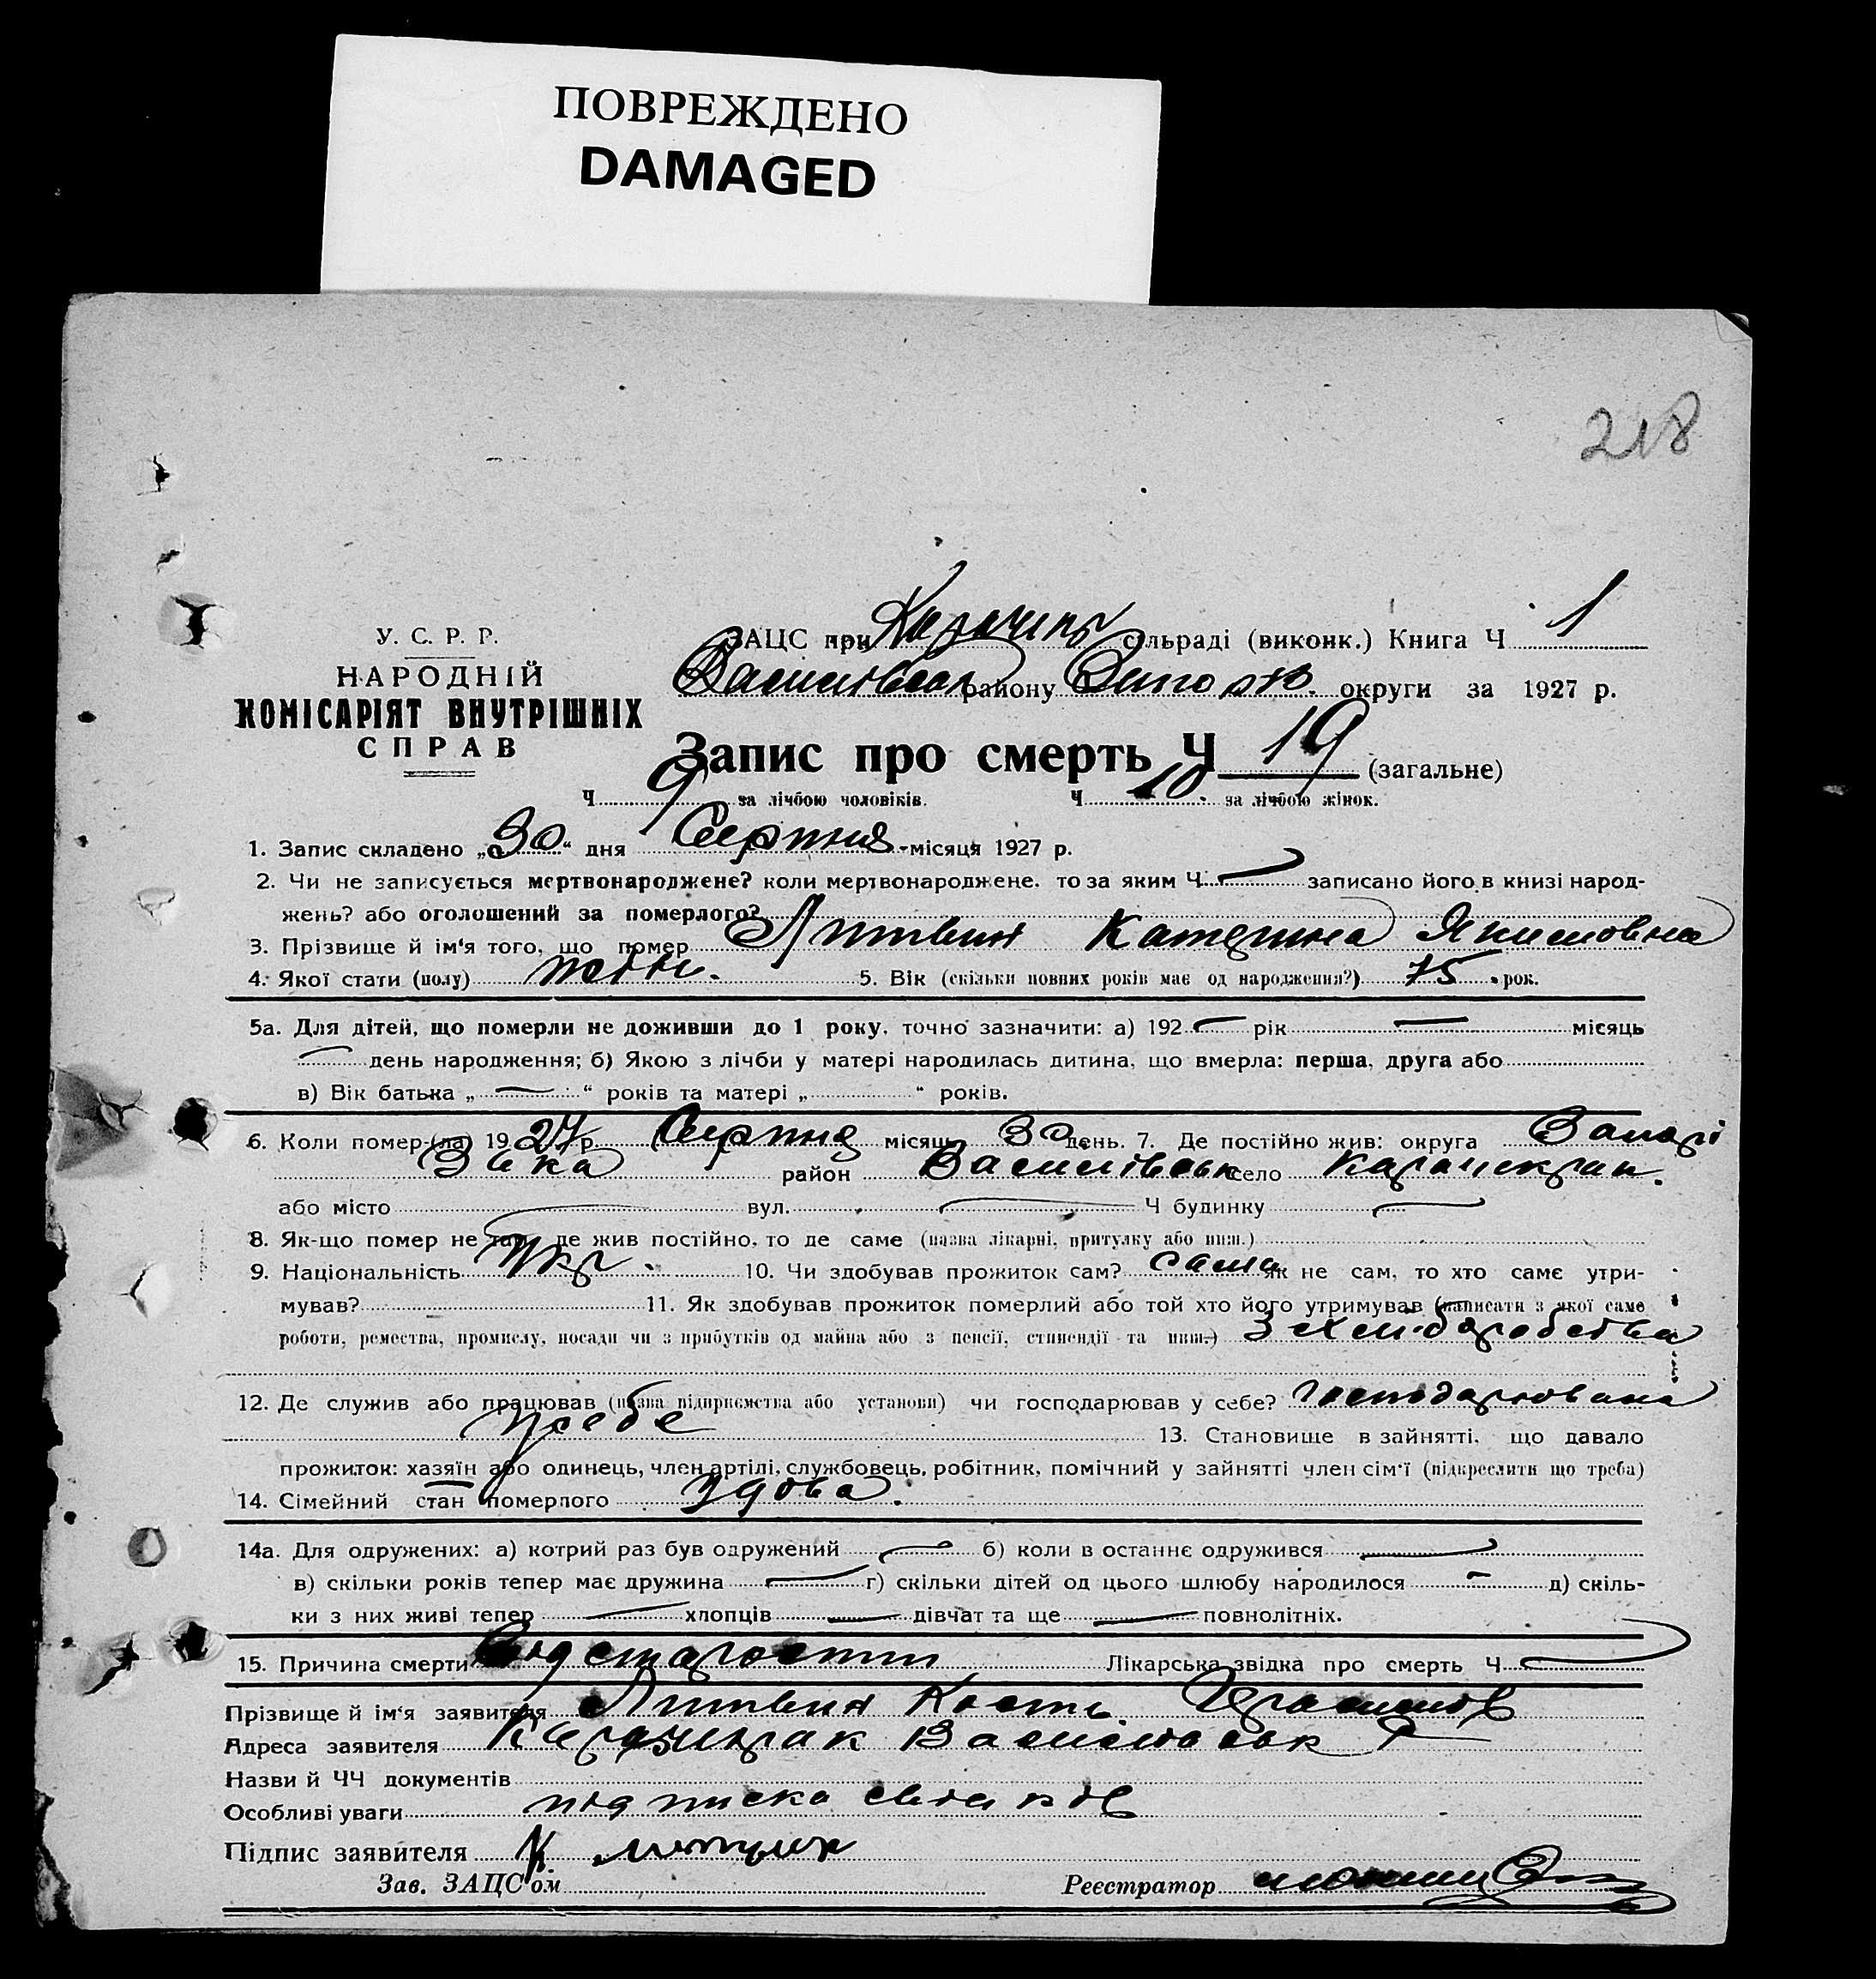 ПОВРЕЖДЕНО
DAMAGED
218
У. С. Р. Р.
НАРОДНІЙ
КОМІСАРІЯТ ВНУТРІШНІХ
СПРАВ
ЗАЦС при сільраді (виконк.) Книга Ч 1
Василівськ району округи за 1927 р.
Запис про смерть Ч 19 (загальне)
Ч 9 за лічбою чоловіків. Ч 10. за лічбою жінок.
1. Запис складено „30“ дня Серпня місяця 1927 р.
2. Чи не записується мертвонароджене? коли мертвонароджене, то за яким Ч. — записано його в книзі народ-
жень? або оголошений за померлого?
3. Прізвище й ім‘я того, що помер Литвин Катерина Якимовна
4. Якої стати (полу) жін. 5. Вік (скільки повних років має од народження?) 75 рок.
5а. Для дітей, що померли не доживши до 1 року, точно зазначити: а) 192 — рік — місяць
— день народження; б) Якою з лічби у матері народилась дитина, що вмерла: перша, друга або
в) Вік батька „ — “ років та матері „ “ років.
6. Коли помер-(ла) 1927 р. Серпня місяць 30 день. 7. Де постійно жив: округа Запорі
зька район Василівськ село Карачекрак.
або місто — вул. — Ч будинку —
8. Як-що помер не там, де жив постійно, то де саме (назва лікарні, притулку або инш.)
9. Національність Укр. 10. Чи здобував прожиток сам? сама як не сам, то хто саме утри-
мував? 11. Як здобував прожиток померлий або той хто його утримував (написати з якої саме
роботи, ремества, промислу, посади чи з прибутків од майна або з пенсії, стипендії та инш.) З хліборобства
12. Де служив або працював (назва підприємства або установи) чи господарював у себе? господарювала
у себе 13. Становище в зайнятті, що давало
прожиток: хазяїн або одинець, член артілі, службовець, робітник, помічний у зайнятті член сім‘ї (підкреслити що треба)
14. Сімейний стан померлого здова.
14а. Для одружених: а) котрий раз був одружений — б) коли в останнє одружився —
в) скільки років тепер має дружина — г) скільки дітей од цього шлюбу народилося — д) скіль-
ки з них живі тепер — хлопців — дівчат та ще — повнолітніх.
15. Причина смерти від старости Лікарська звідка про смерть Ч —
Прізвище й ім‘я заявителя Литвин Кость Герасимов
Адреса заявителя Карачекрак Василівськ Р
Назви й ЧЧ документів
Особливі уваги підписка свідків
Підпис заявителя К.
Зав. ЗАЦС‘ом Реєстратор